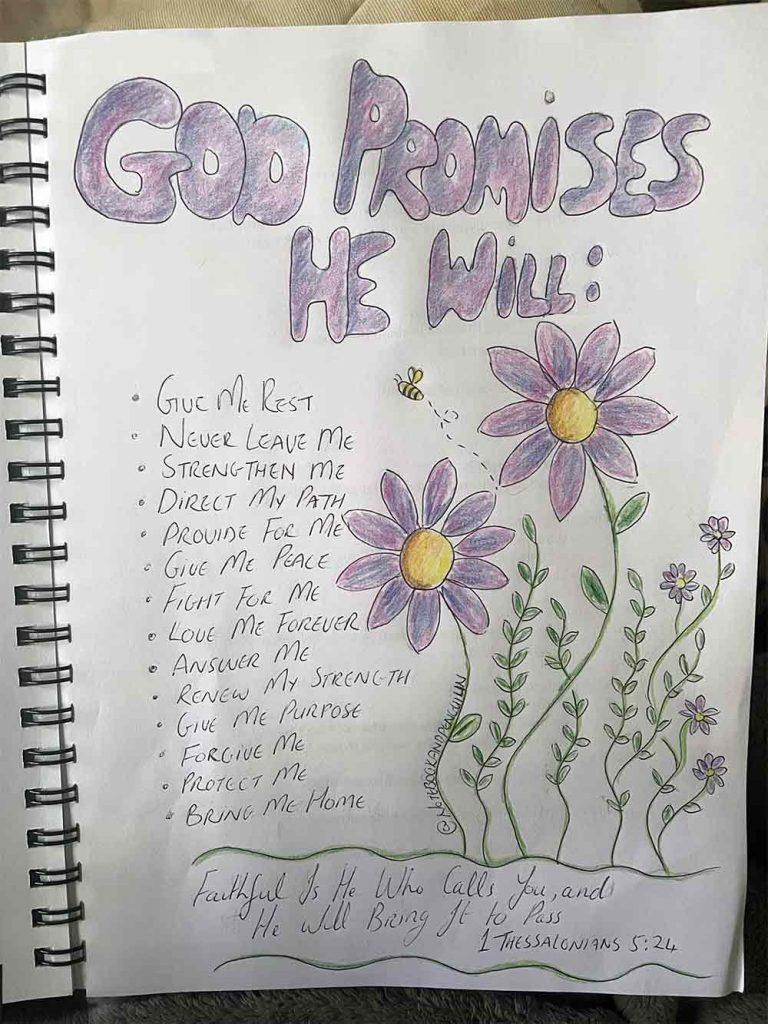 GOD PROMISES
HE WILL:
• GIVE ME REST
• NEVER LEAVE ME
• STRENGTHEN ME
• DIRECT MY PATH
• PROVIDE FOR ME
• GIVE ME PEACE
• FIGHT FOR ME
• LOVE ME FOREVER
• ANSWER ME
• RENEW MY STRENGTH
• GIVE ME PURPOSE
• FORGIVE ME
• PROTECT ME
• BRING ME HOME
Faithful Is He Who Calls You, and
He will Bring It to Pass
1 THESSALONIANS 5:24